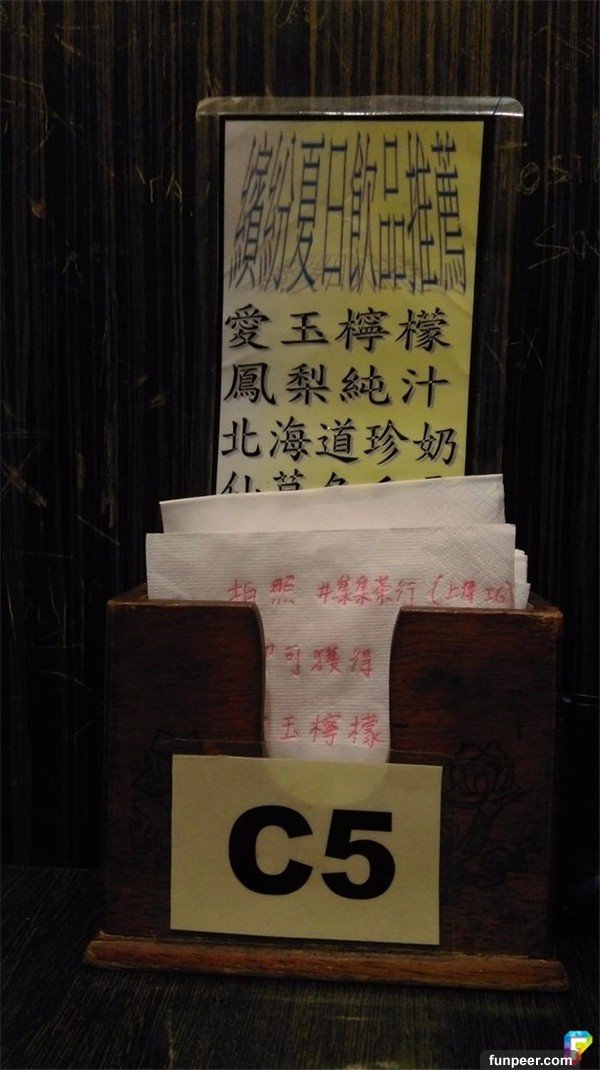 繽紛夏日飲品推薦
愛玉檸檬
鳳梨純汁
北海道珍奶
拍照 #集集茶行 (上傳IG)
可獲得
玉檸檬
C5
funpeer.com